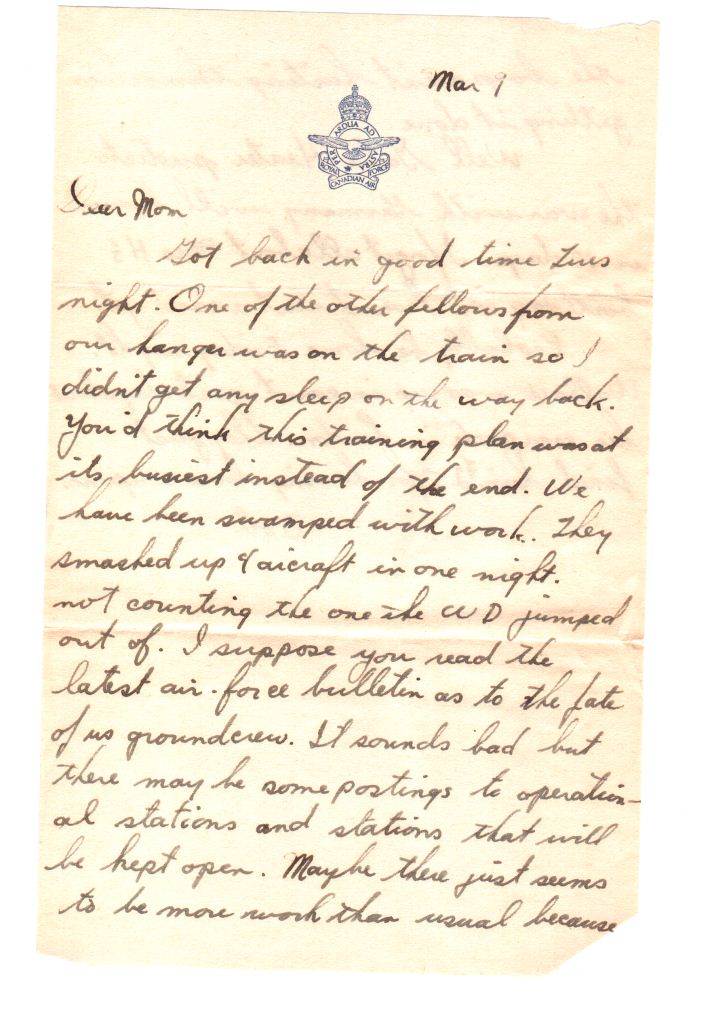 Mar 9
PER ARDUA AD ASTRA
ROYAL CANADIAN AIR FORCE
Dear Mom
Got back in good time Tues
night. One of the other fellows from
our hanger was on the train so I
didn't get any sleep on the way back.
You'd think this training plan was at
its busiest instead of the end. We
have been swamped with work. They
smashed up 4 aicraft in one night.
not counting the one the WD jumped
out of. I suppose you read the
latest air-force bulletin as to the fate
of us groundcrew. It sounds bad but
there may be some postings to operation-
al stations and stations that will
be kept open. Maybe there just seems
to be more work than usual because